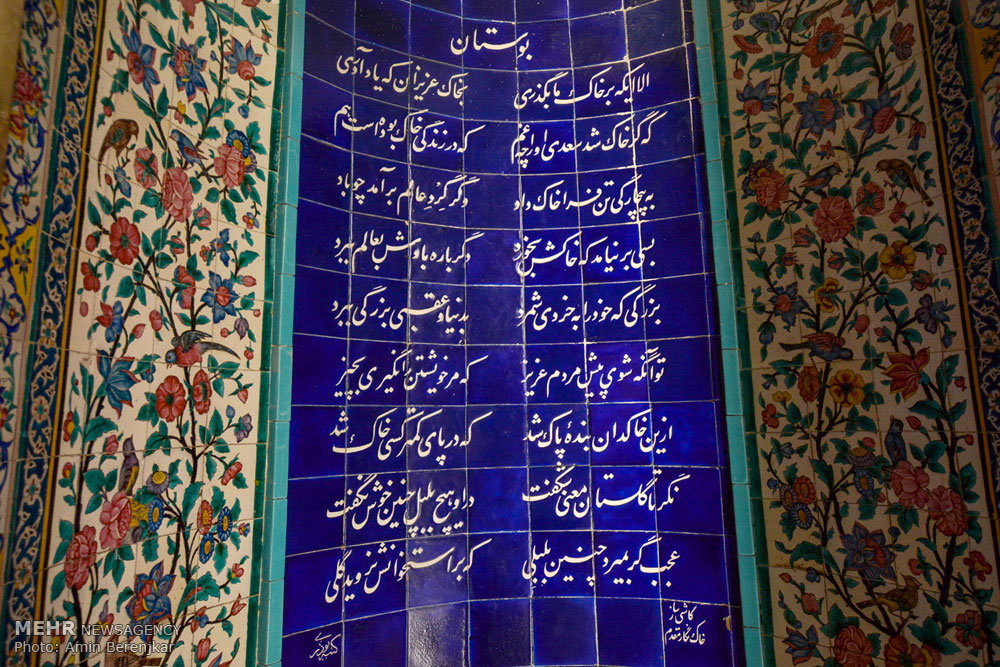 بوستان
الا ایکه بر خاک ما بگذری بخاک عزیزان که یاد آوری
که گر خاک شد سعدی او را چه غم که در زندگی خاک بوده است هم
به بیچارگی تن فرا خاک داد دگر گرد عالم برآمد چو باد
بسی برنیامد که خاکش بخورد دگر باره بادش بعالم ببرد
بزرگی که خود را به خردی شمرد بدنیا و عقبی بزرگی ببرد
تو آنگه شوی پیش مردم عزیز که مر خویشتن را نگیری بچیز
ازین خاکدان بنده پاک شد که در پای کمتر کسی خاک شد
نگر تا گلستان معنی شگفت در او هیچ بلبل چنین خوش نگفت
عجب گر بمیرد چنین بلبلی که بر استخوانش نروید گلی
کاشی ساز
خاک نگار مقدم
MEHR NEWSAGENCY
Photo: Amin Berenjkar